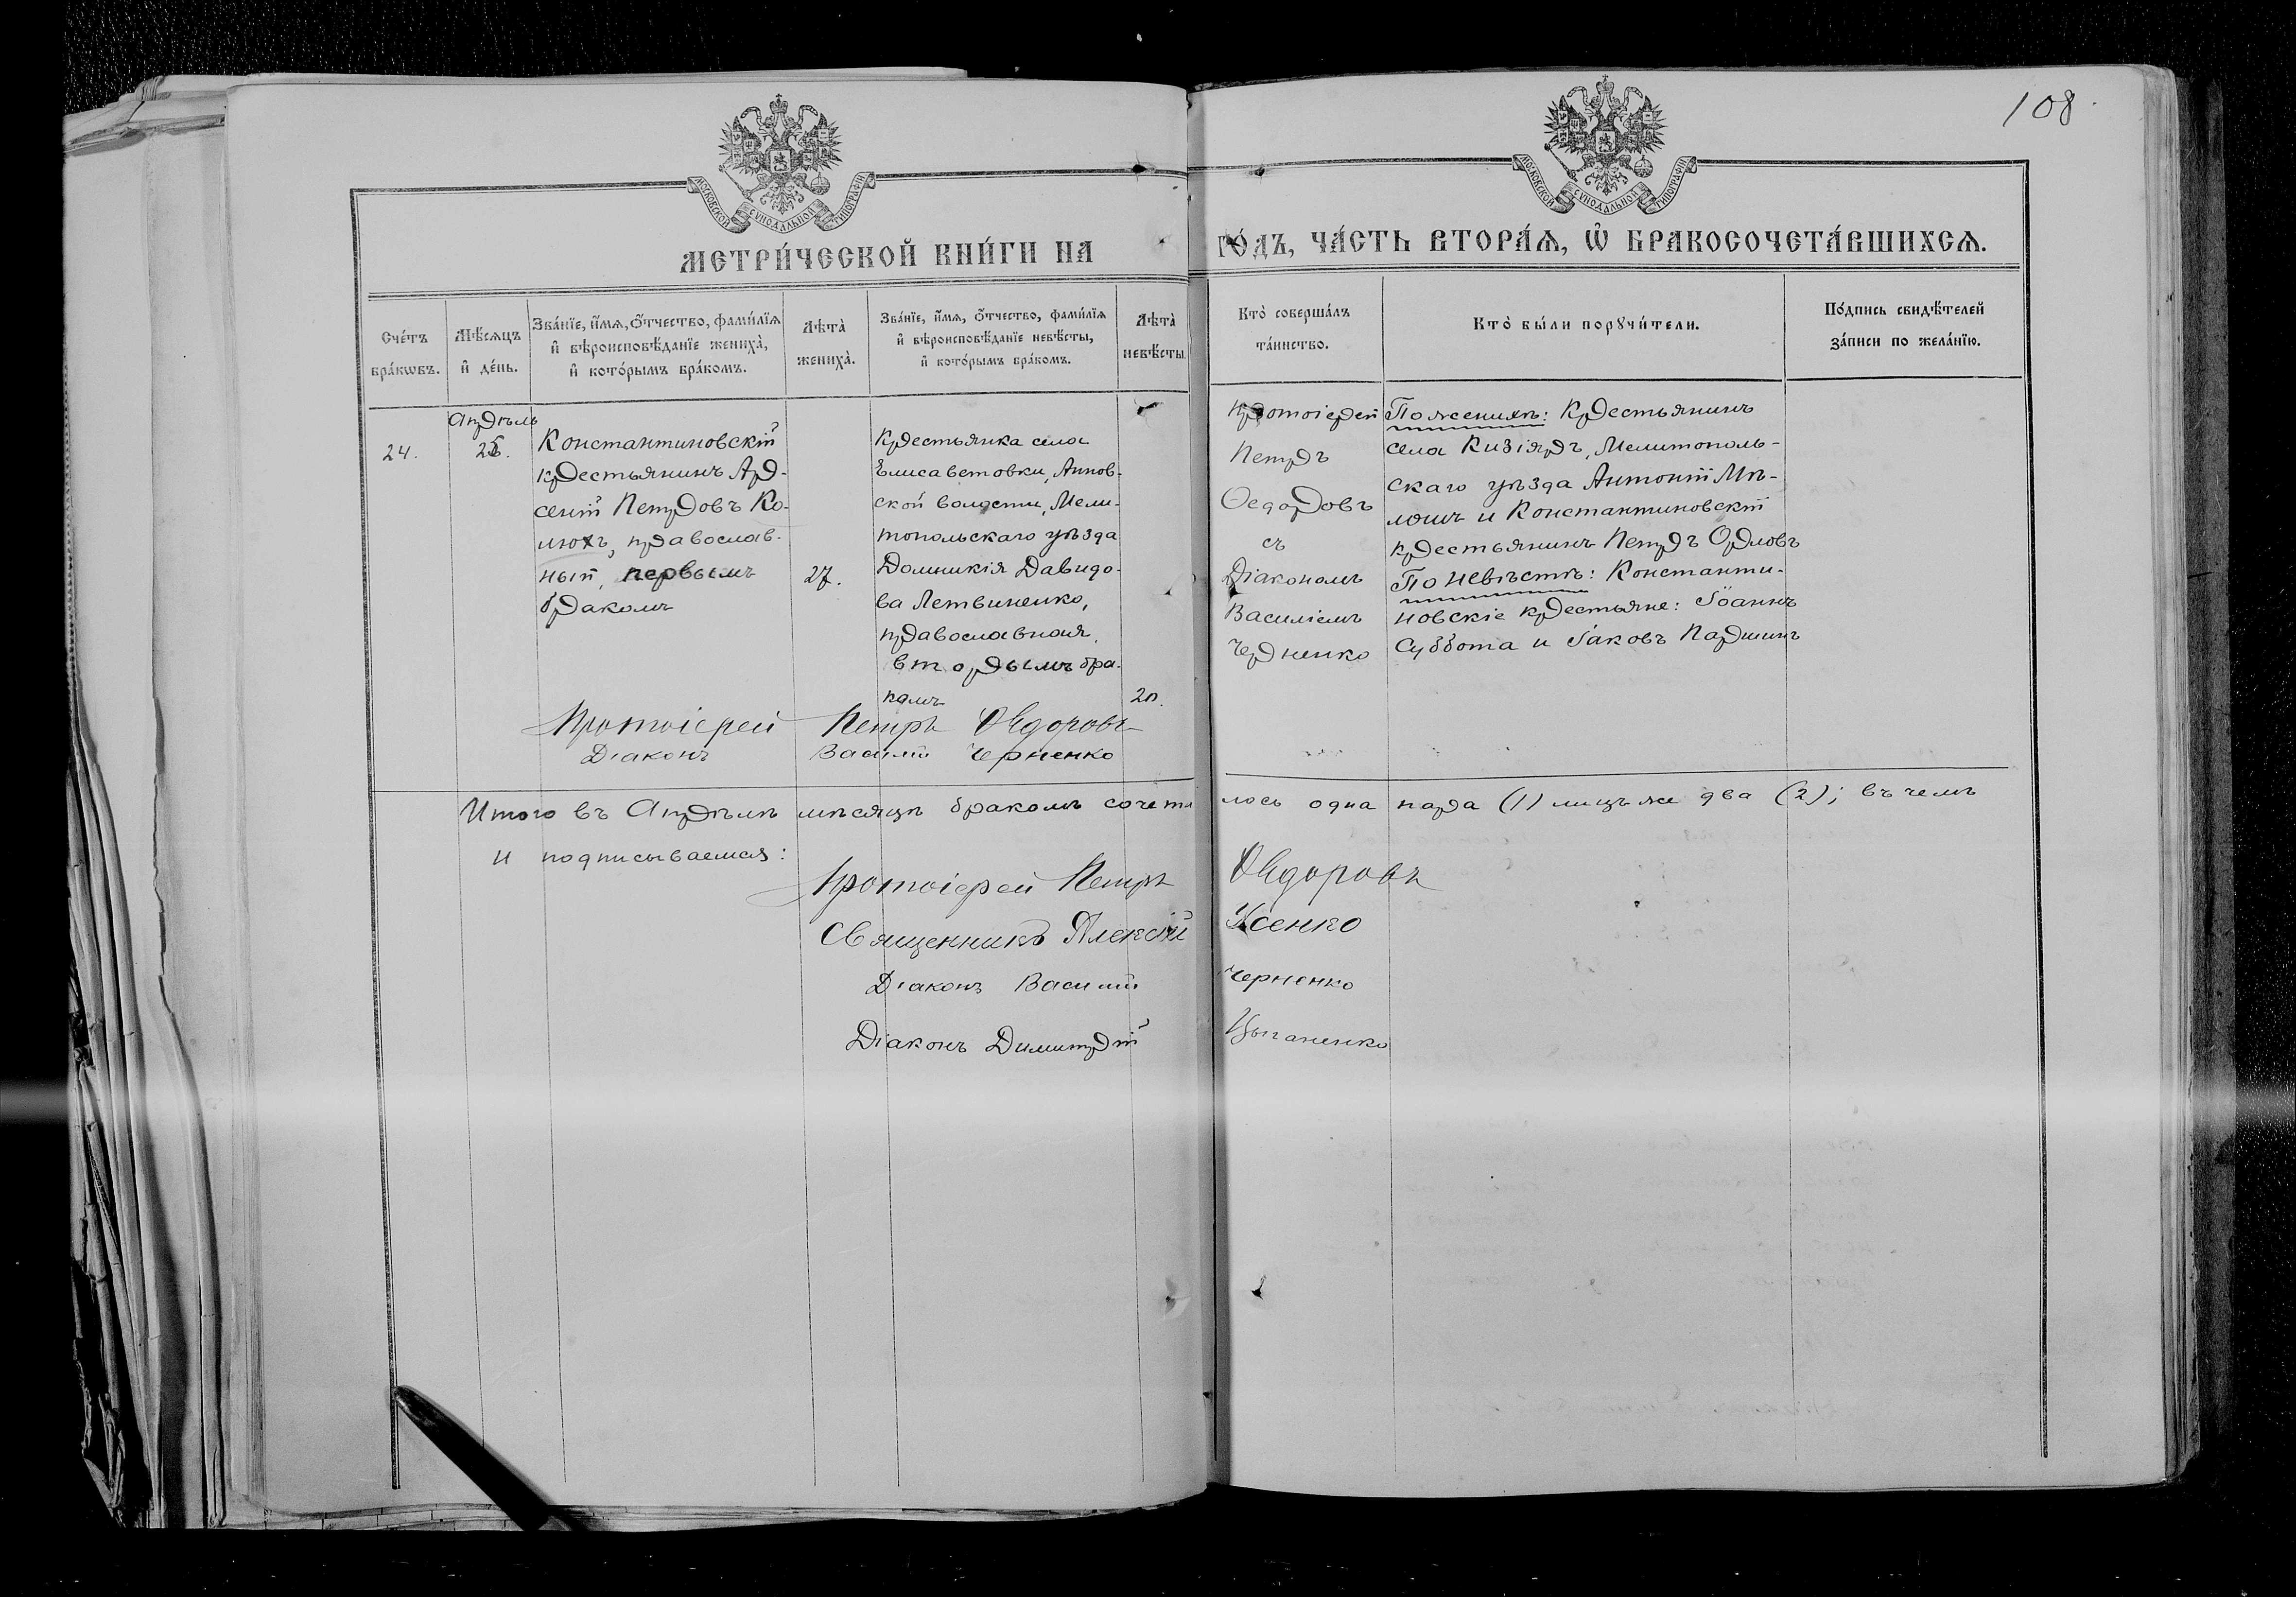 108.
МОСКОВСКОЙ СѴНОДАЛЬНОЙ ТИПОГРАФІИ
МОСКОВСКОЙ СѴНОДАЛЬНОЙ ТИПОГРАФІИ
МЕТРИ́ЧЕСКОЙ КНИ́ГИ НА ГО́ДЪ, ЧА́СТЬ ВТОРА́Ѧ, Ѡ҆ БРАКОСОЧЕТА́ВШИХСѦ.
Сче́тъ
бра́кѡвъ.
Мѣ́сѧцъ
и҆ де́нь.
Зва́нїе, и҆́мѧ, ѻ҆́тчество, фами́лїѧ
и҆ вѣроисповѣ́данїе жениха̀,
и҆ кото́рымъ бра́комъ.
Лѣта̀
жениха̀.
Зва́нїе, и҆́мѧ, ѻ҆́тчество, фами́лїѧ
и҆ вѣроисповѣ́данїе невѣ́сты,
и҆ кото́рымъ бра́комъ.
Лѣта̀
невѣ́сты.
Кто̀ соверша́лъ
та́инство.
Кто̀ бы́ли порꙋчи́тели.
По́дпись свидѣ́телей
за́писи по жела́нїю.
24.
Апрѣль
Константиновскій
крестьянинъ Ар-
сеній Петровъ Ко-
люхъ, православ-
ный, первымъ
бракомъ
27.
Крестьянка села
Елисаветовки, Аннов-
ской волости, Мели-
топольскаго уѣзда
Домникія Давидо-
ва Летвиненко,
православная,
вторымъ бра-
комъ
Протоіерей
Петръ
Ѳедоровъ
съ
Діакономъ
Василіемъ
Черненко
По женихѣ: Крестьянинъ
села Кизіяръ, Мелитополь-
скаго уѣзда Антоній
и Константиновскій
крестьянинъ Петръ Орловъ
По невѣстѣ: Константи-
новскіе крестьяне: Іоаннъ
Суббота и Іаковъ Паршинъ
Протоіерей Петръ Ѳедоровъ
Діаконъ Василій Черненко
Итого въ Апрѣлѣ мѣсяцѣ бракомъ сочета лось одна пара (1) лицъ же два (2); въ чемъ
и подписываемся:
Протоіерей Петръ Ѳедоровъ
Священникъ Алексій Усенко
Діаконъ Василій Черненко
Діаконъ Димитрій Цыганенко